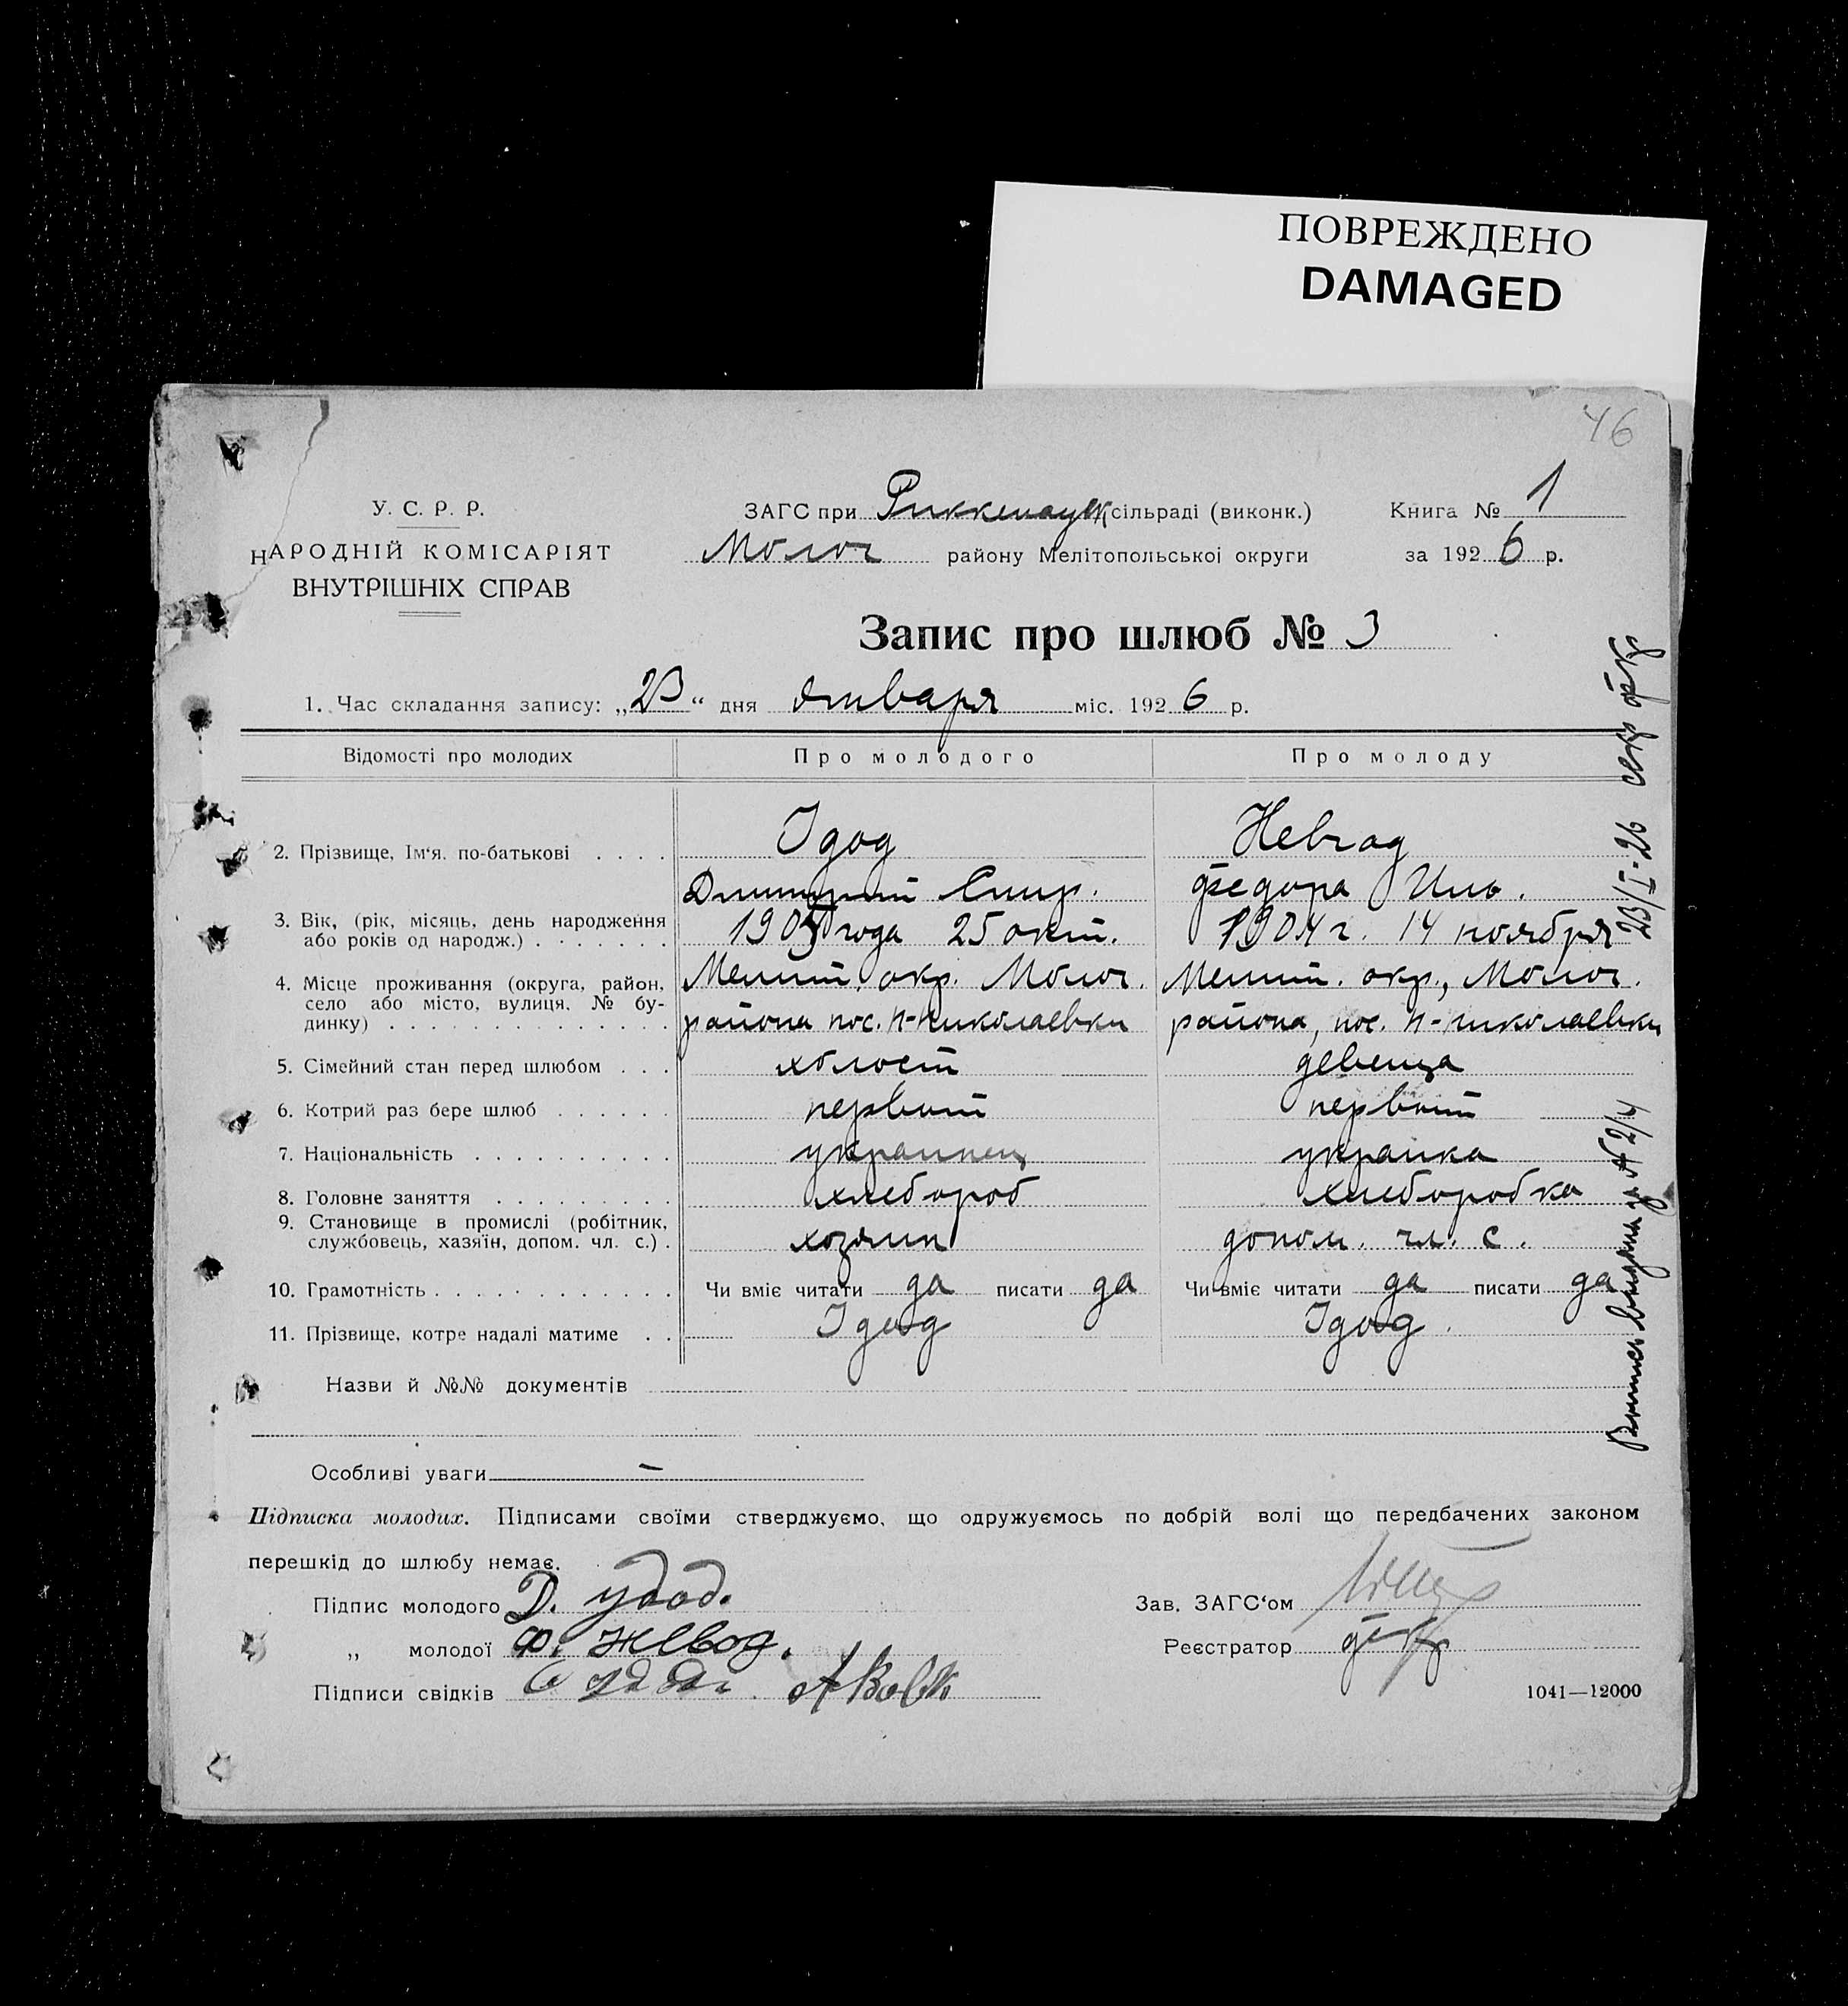 ПОВРЕЖДЕНО
DAMAGED
46
У. С. Р. Р.
НАРОДНІЙ КОМІСАРІЯТ
ВНУТРІШНІХ СПРАВ
ЗАГС при Риккенауск сільраді (виконк.)
Молоч району Мелітопольської округи
Книга № 1
за 1926 р.
Запис про шлюб № 3
1. Час складання запису: „23“ дня января міс. 1926 р.
Відомості про молодих Про молодого Про молоду
2. Прізвище, Ім'я. по-батькові . . . . Удод
Дмитрий Спир. Невгад
Федора Иль.
3. Вік, (рік, місяць, день народження
або років од народж.) . . . . . . . 1905 года 25 окт. 1904 г. 14 ноября
4. Місце проживання (округа, район,
село або місто, вулиця, № бу-
динку) . . . . . . . . . . . . . . Мелит. окр. Молоч.
района пос. Н-Николаевки Мелит. окр., Молоч.
района, пос. Н-Николаевки
5. Сімейний стан перед шлюбом . . . холост девица
6. Котрий раз бере шлюб . . . . . . первый первый
7. Національність . . . . . . . . . . украинец украинка
8. Головне заняття . . . . . . . . . хлебороб хлеборобка
9. Становище в промислі (робітник,
службовець, хазяїн, допом. чл. с.) . хозяин допом. чл. с.
10. Грамотність . . . . . . . . . . . . Чи вміє читати да писати да Чи вміє читати да писати да
11. Прізвище, котре надалі матиме . . Удод Удод.
Назви й №№ документів
Особливі уваги –
Підписка молодих. Підписами своїми стверджуємо, що одружуємось по добрій волі що передбачених законом
перешкід до шлюбу немає.
Підпис молодого Д. Удод.
„ молодої Ф. Невгод.
Підписи свідків
Зав. ЗАГС'ом
Реєстратор
1041—12000
Выпись выдана за № 2/4
23/I-26